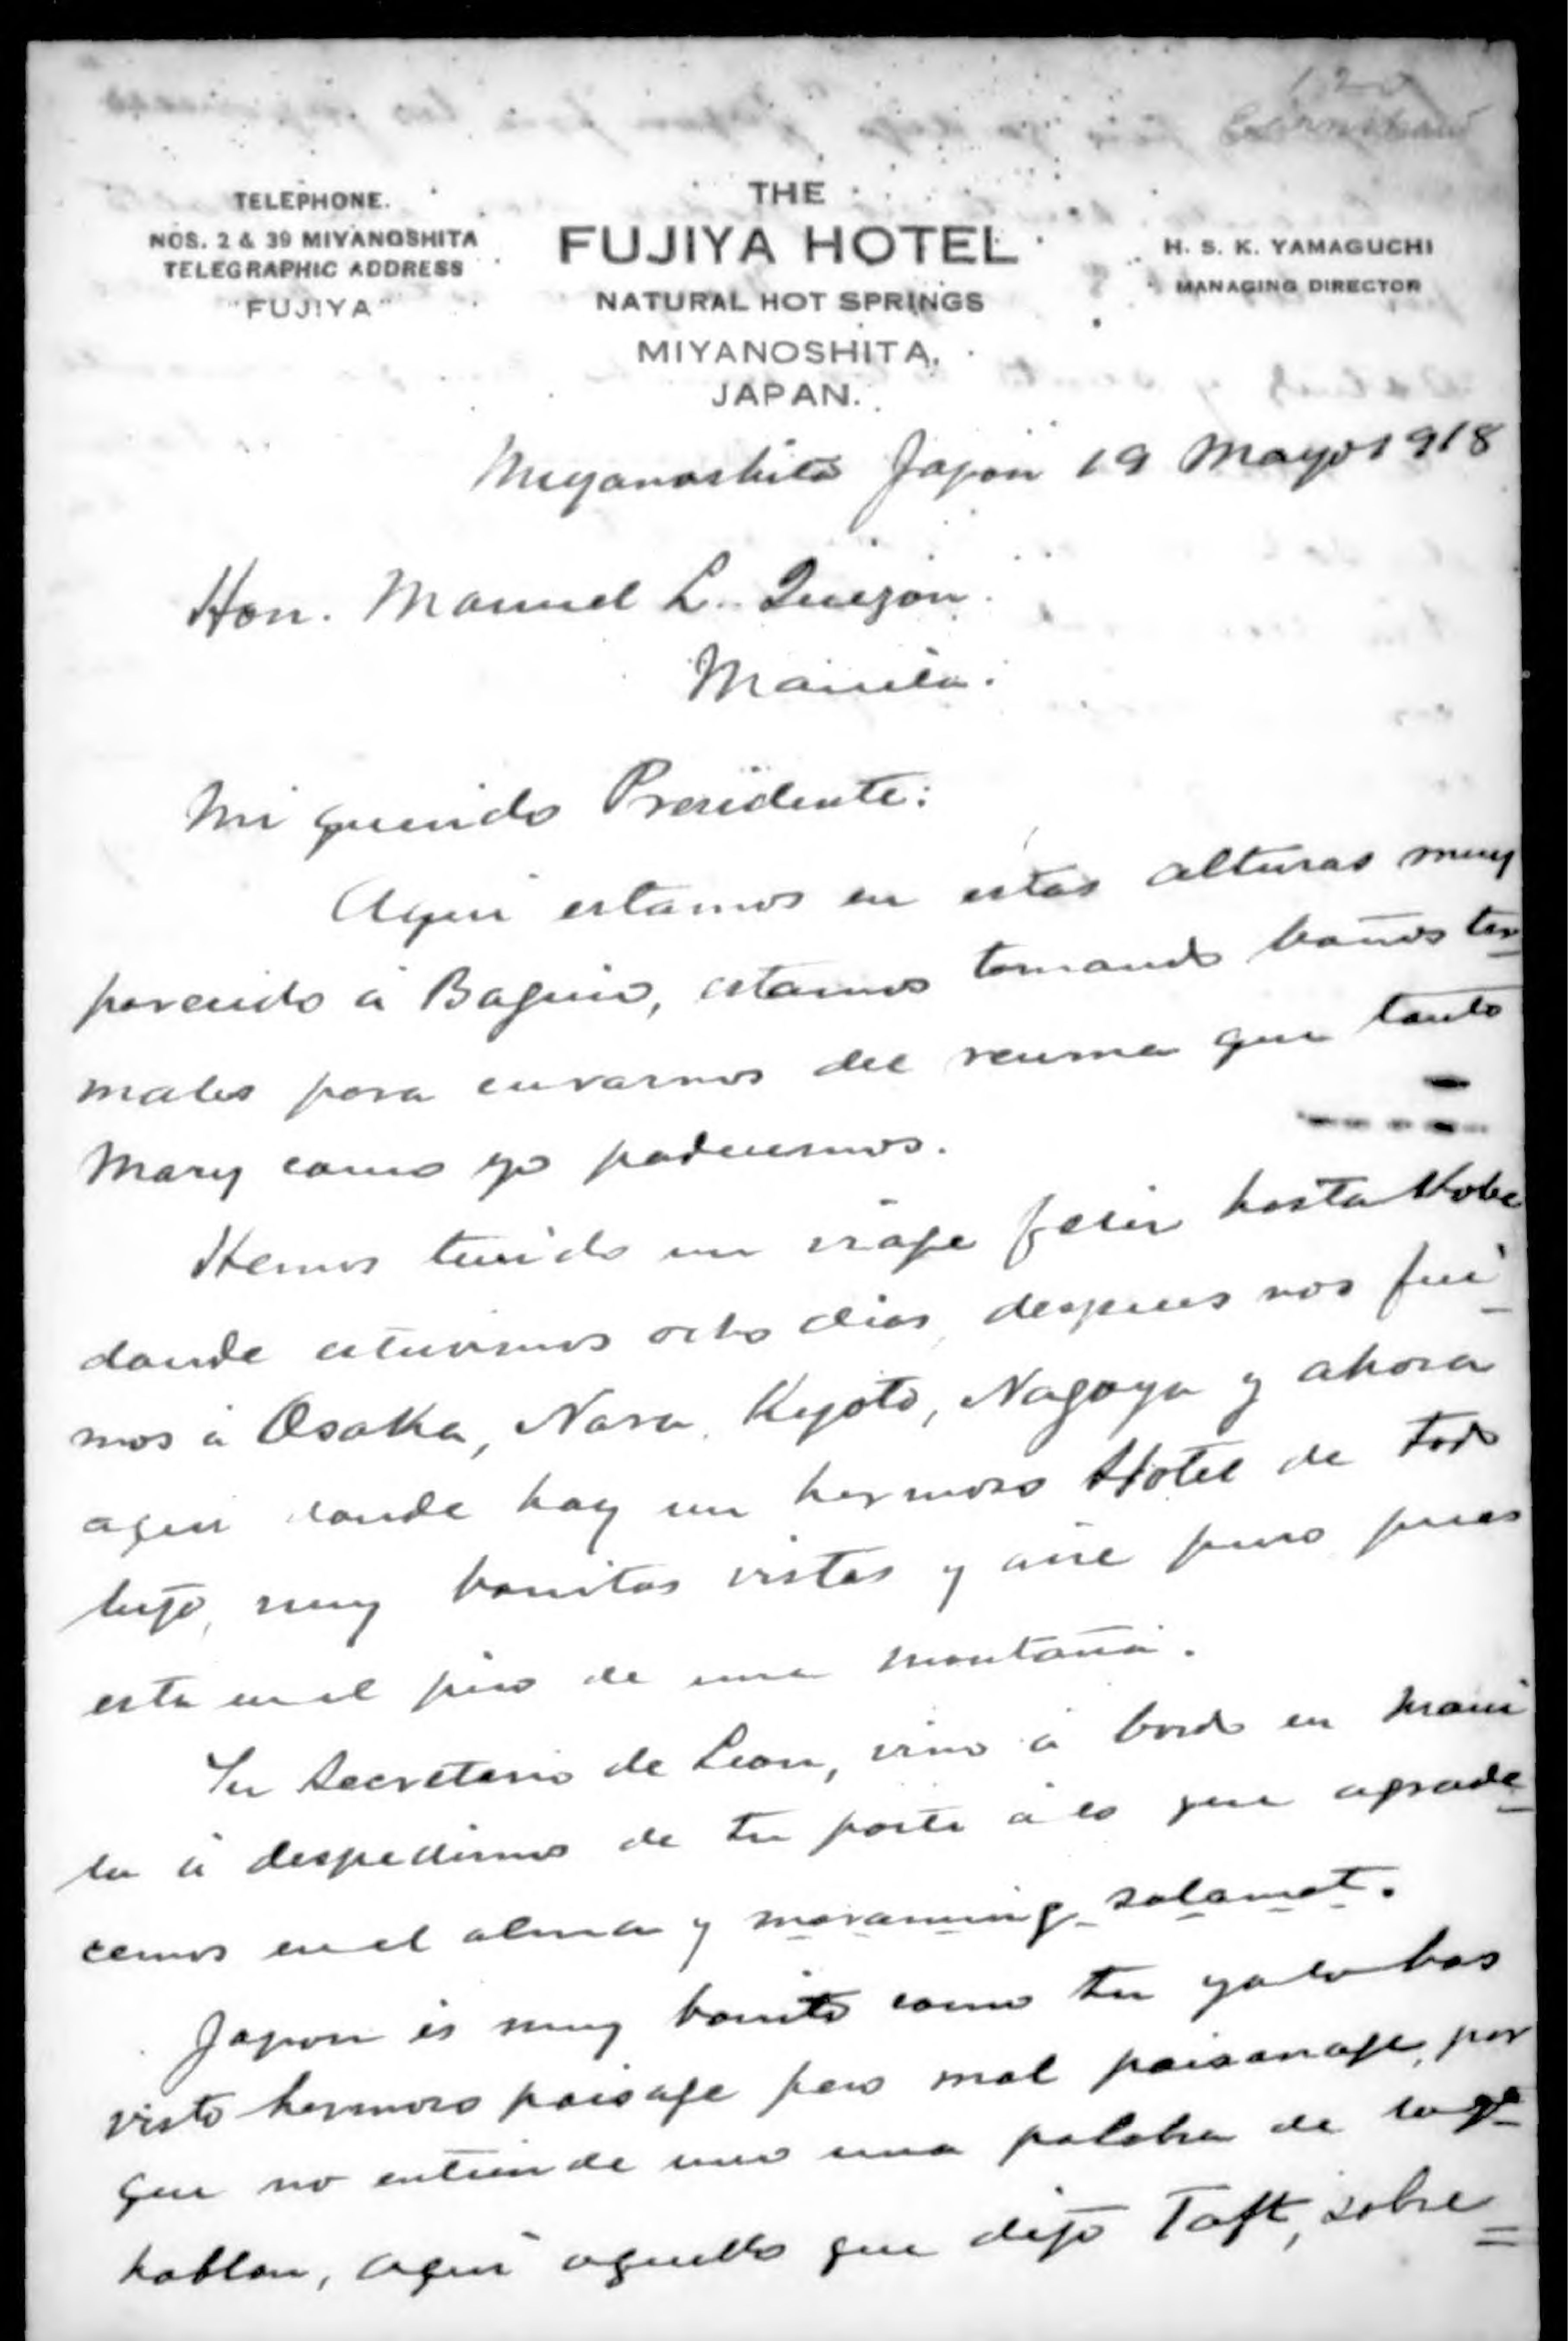 120
Earnshaw
TELEPHONE.
NOS. 2 & 39 MIYANOSHITA
TELEGRAPHIC ADDRESS
"FUJIYA"
THE
FUJIYA HOTEL
NATURAL HOT SPRINGS
MIYANOSHITA,
JAPAN.
H. S. K. YAMAGUCHI
MANAGING DIRECTOR
Miyanoshita Japon 19 Mayo 1918
Hon. Manuel L. Quezon.
Manila.
Mi querido Presidente:
Aqui estamos en estas alturas muy
parecido á Baguio, estamos tomando baños ter-
males para curarnos del reuma que tanto
Mary como yo padecemos.
Hemos tenido un viaje feliz hasta Kobe
donde estuvimos ocho dias, despues nos fui-
mos á Osaka, Nara, Kyoto, Nagoya y ahora
aqui donde hay un hermoso Hotel de todo
lujo, muy bonitas vistas y aire puro pues
esta en el pico de una montaña.
Tu Secretario de Leon, vino á bordo en Mani
la á despedirnos de tu parte á lo que agrade-
cemos en el alma y maraming salamat.
Japon es muy bonito como tu ya lo has
visto hermoso paisaje pero mal paisanaje, por
que no entiende uno una palabra de lo qe
hablan, aqui aquello que dijo Taft, sobre